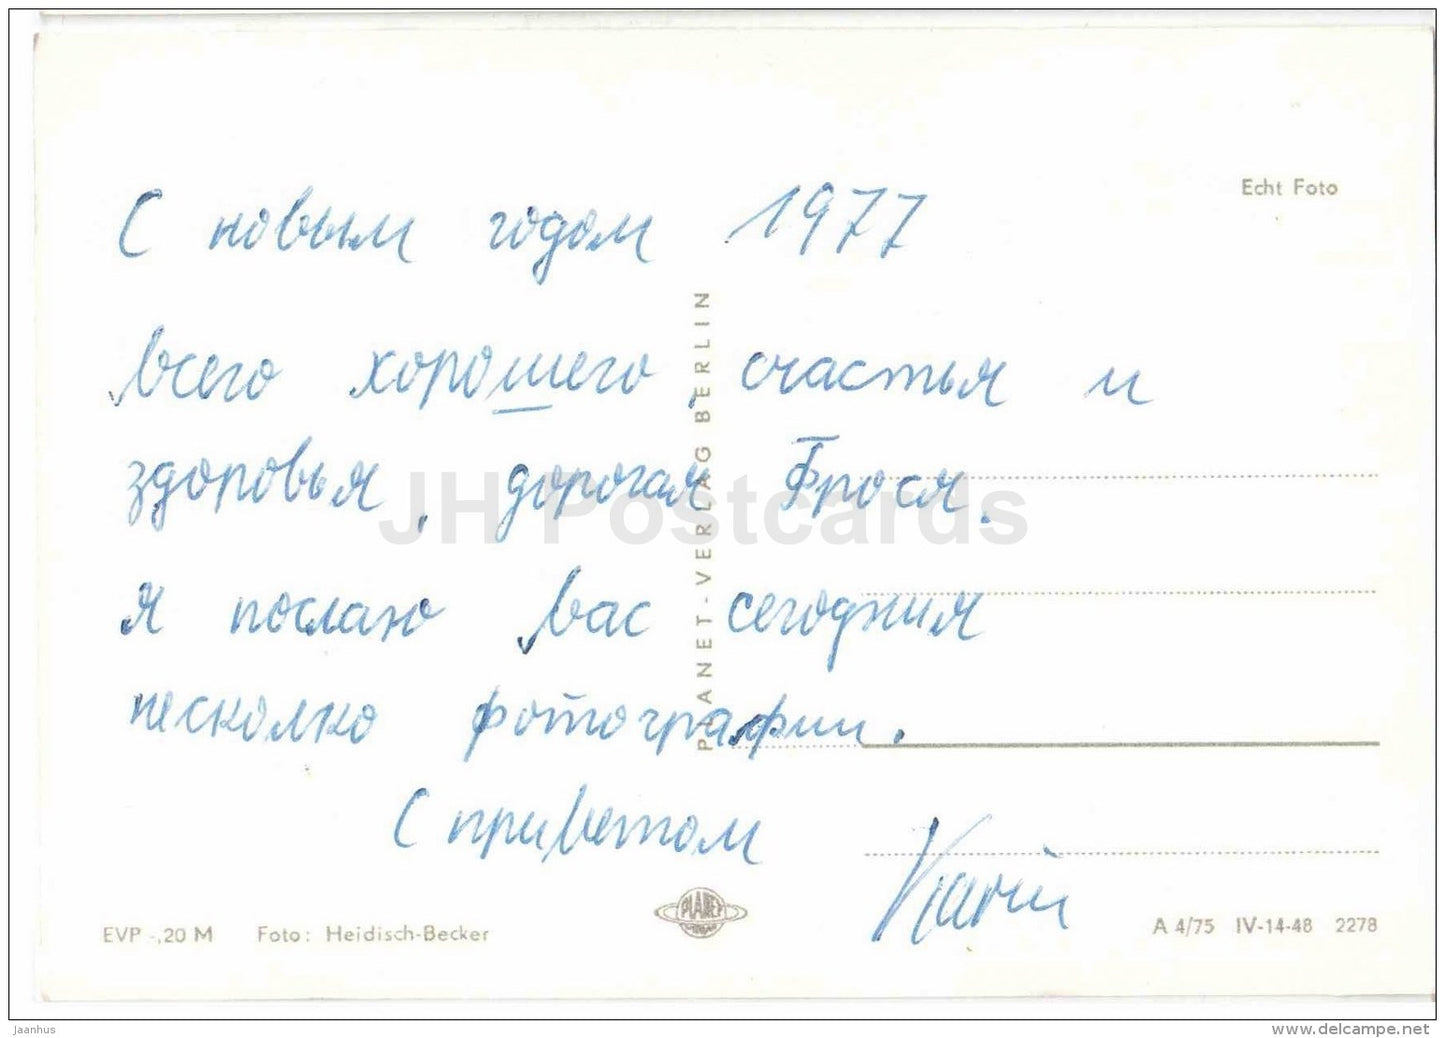 Echt Foto
С новым годом 1977
всего хорошего, счастья и
здоровья, дорогая Фрося.
Я послаю вас сегодния
несколко фотографии.
С приветом
Karin
PLANET-VERLAG BERLIN
PLANET
EVP -,20 M Foto: Heidisch-Becker
A 4/75 IV-14-48 2278
JH Postcards
jaanhus
www.delcampe.net